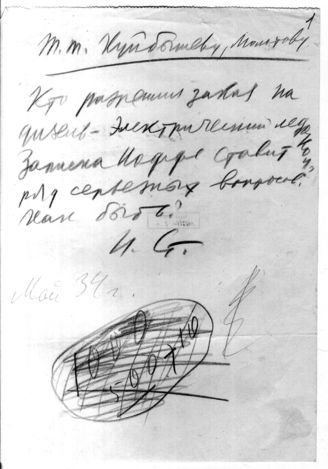 1
т.т. Куйбышеву, Молотову
Кто разрешил заказ на
дизель-электрический ледокол?
Записка Иоффе ставит
ряд серьезных вопросов.
Как быть?
И. Ст.
Май 34 г.
1000
500×10